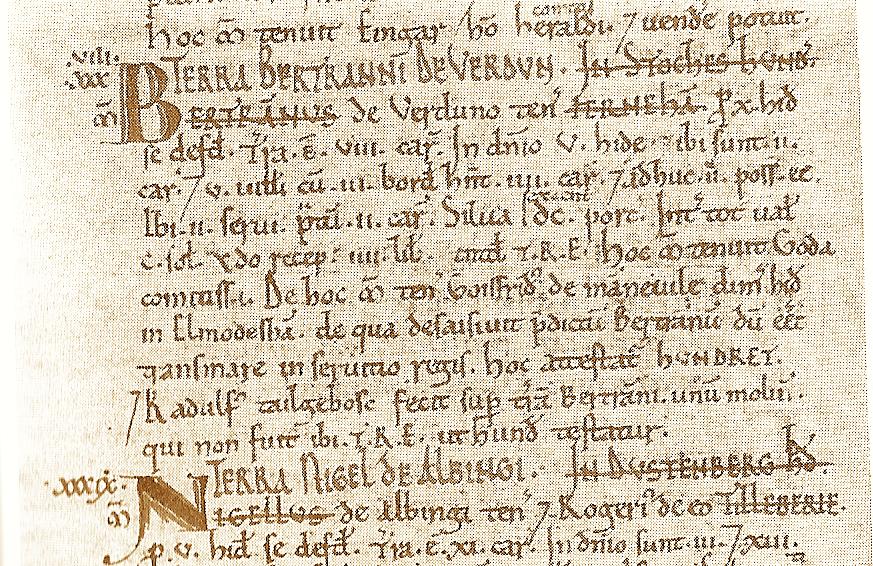 hoc ꝏ tenuit Eingar hō heraldi. ⁊ uende᷑ potuit.
.VIII.
XXX TERRA BERTRANNI DE VERDVN. IN STOCHES HVND̄.
ꝏ BERTRANNUS de Verduno ten̄ FERNEHĀ ꝑ x. hid̄
se defd̄. T̄ra. ē. viii. car̄. In dn̄io v. hidę. ⁊ ibi sunt .ii.
car̄. ⁊ v. uilli cū .iii. bord̄ hn̄t .iiii. car̄. ⁊ adhuc .ii. poss̄ ēē.
Ibi .ii. serui. p̄tū .ii. car̄. Silua dc. porc̄. Int̄ tot ual̄
c. sol. Q̄do recep̄: iiii. lib. T.R.E: hoc ꝏ tenuit Goda
comitissa. De hoc ꝏ ten̄ Goisfrid̄ de maneuile dim̄ hid̄
in Elmodeshā. de qua desaisiuit p̄dictū Bertrannū dū ēēt
transmare in seruitio regis. hoc attestat̄ HUNDRET.
⁊ Radulf̄ tailgebosc fecit sup̄ t̄rā Bertranni. unū molin̄.
qui non fuit ibi. T.R.E. ut hund̄ testatur.
XXXIX. TERRA NIGEL DE ALBINGI. IN DVSTENBERG hD̄.
ꝏ NIGELLUS de Albingi ten̄ ⁊ Rogeri᷒ de eo TILLEBERIE.
p. v. hid̄ se defd̄. T̄ra. ē. xi. car̄. In dn̄io sunt .iii. ⁊ xiii.